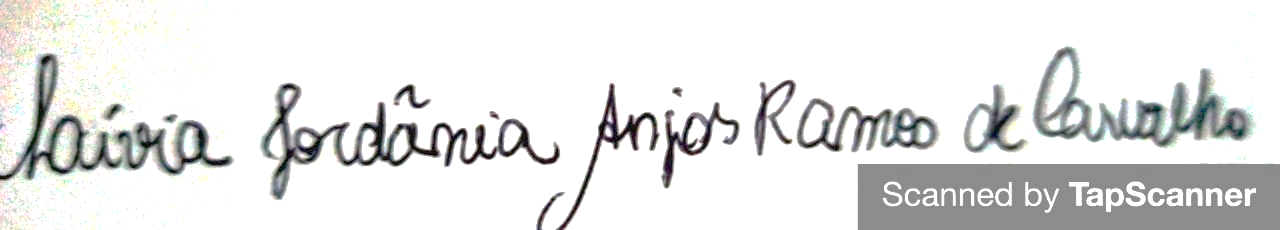 Laívia Jordânia Anjos Ramos de Carvalho
Scanned by TapScanner